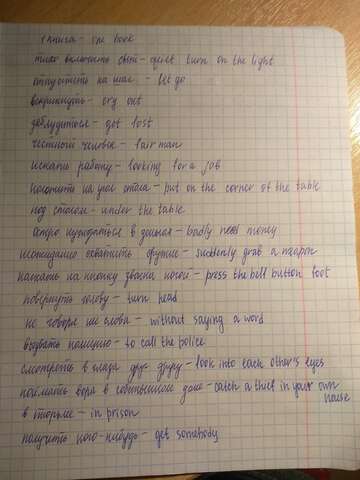 книга - the book
тихо включить свет - quiet turn on the light
отпустить - let go
вскрикнуть - cry out
заблудиться - get lost
честный человек - fair man
искать работу - looking for a job
положить на угол стола - put on the corner of the table
под столом - under the table
остро нуждаться в деньгах - badly need money
неожиданно схватить оружие - suddenly grab a weapon
нажать на кнопку звонка ногой - press the bell button foot
повернуть голову - turn head
не говоря ни слова - without saying a word
вызвать полицию - to call the police
смотреть в глаза друг другу - look into each other's eyes
поймать вора в собственном доме - catch a thief in your own
house
в тюрьме - in prison
получить кого-нибудь - get somebody